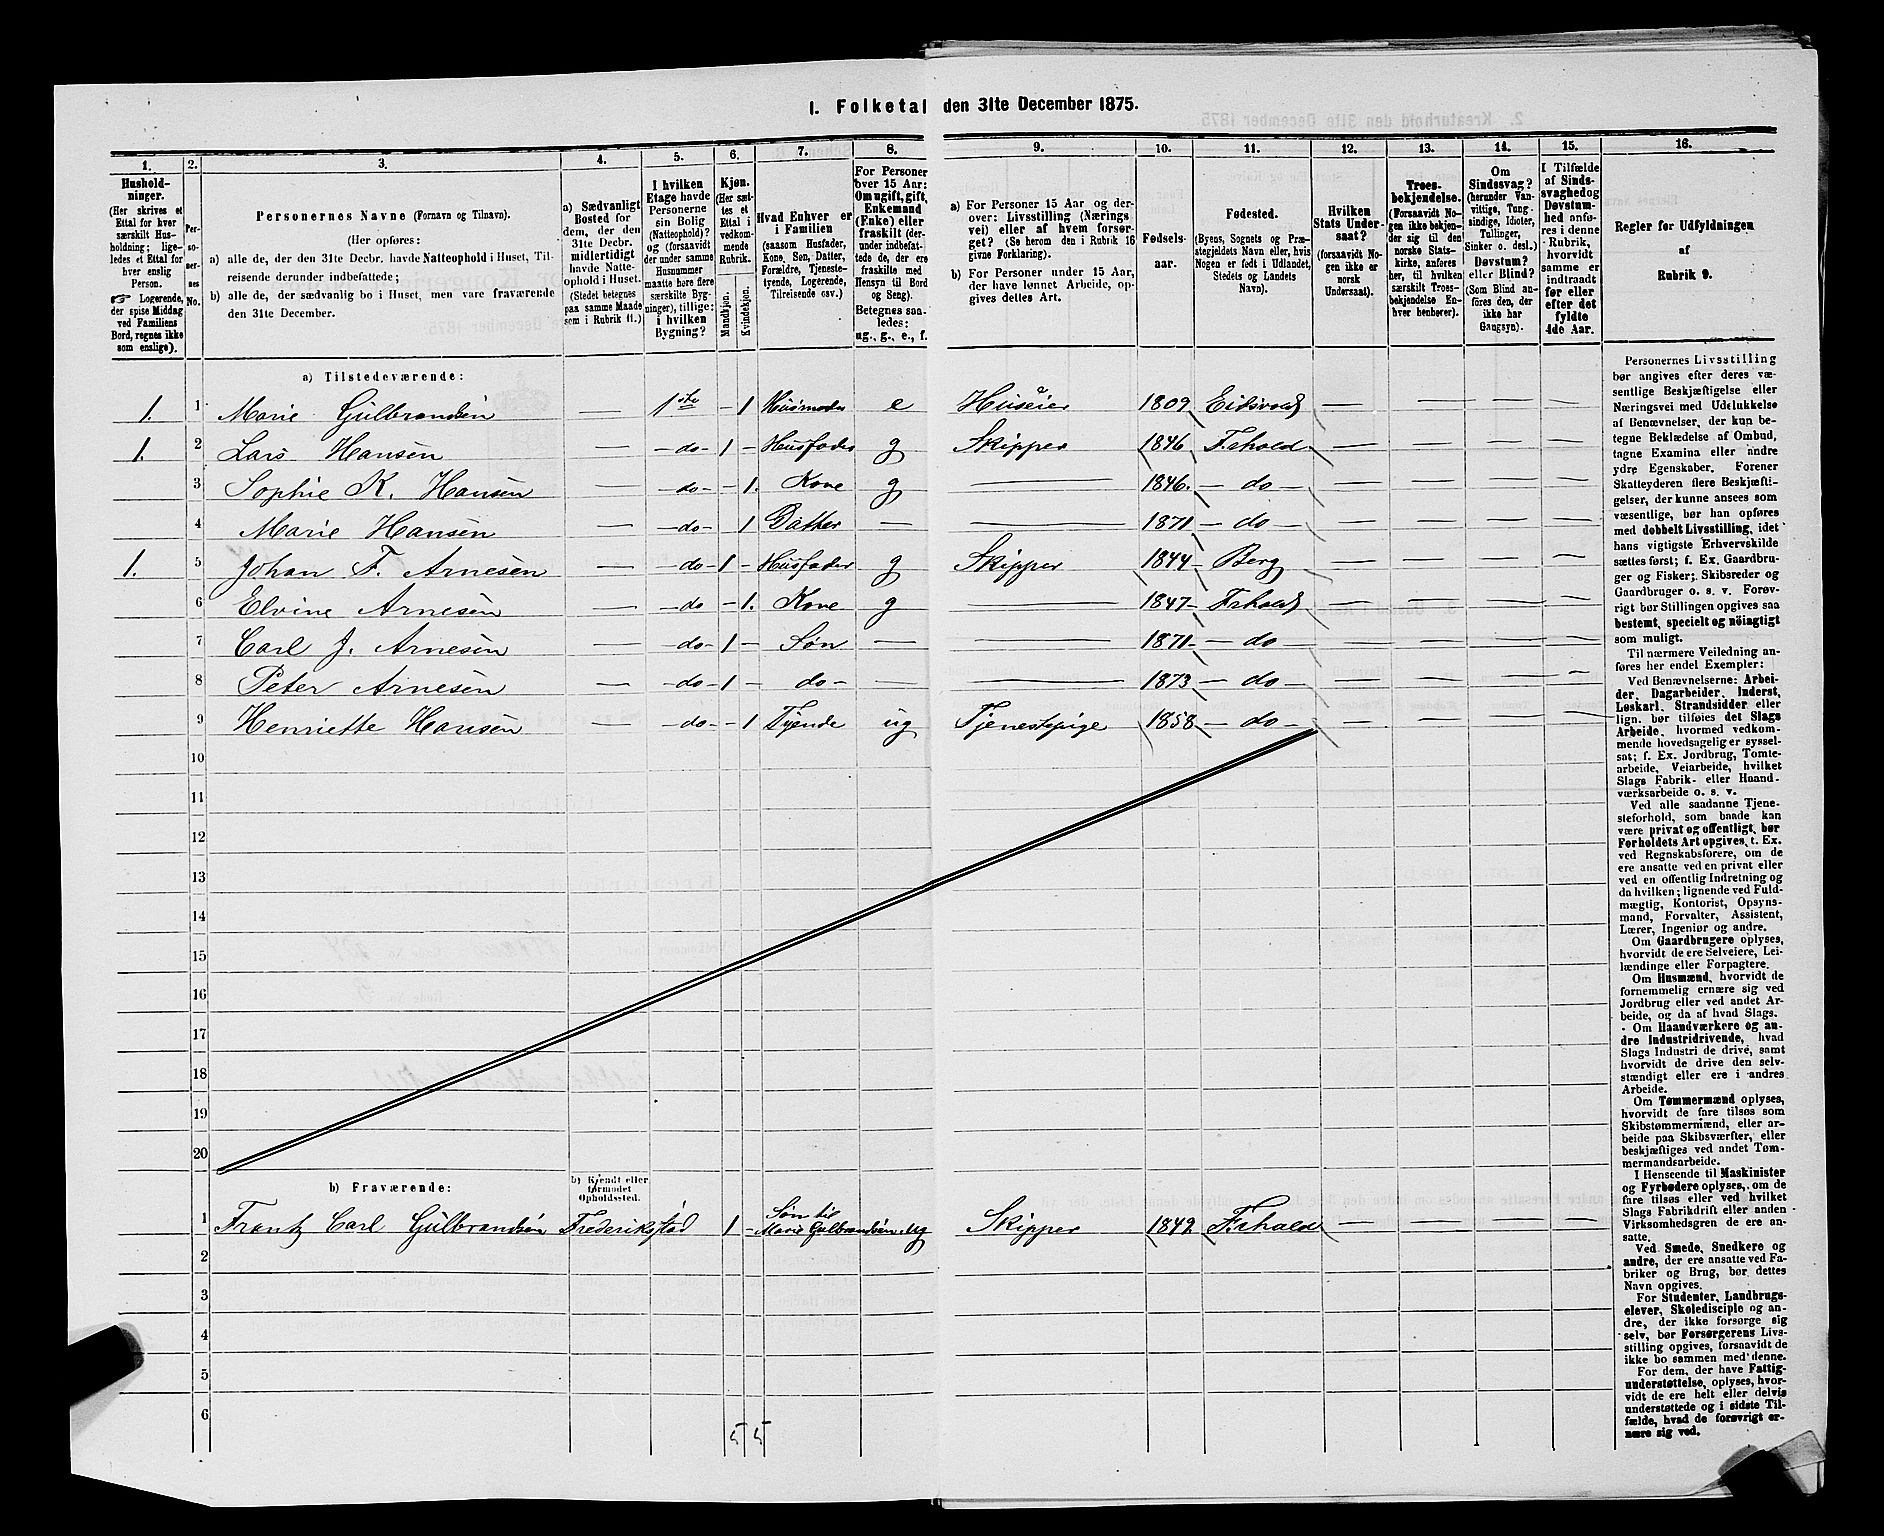 1. Folketal den 31te December 1875.
1. 2. 3. 4. 5. 6. 7. 8. 9. 10. 11. 12. 13. 14. 15. 16.
Hushold-
ninger.
(Her skrives et
Ettal for hver
særskilt Hus-
holdning; lige-
ledes et Ettal for
hver enslig
Person.
☞ Logerende,
der spise Middag
ved Familiens
Bord, regnes ikke
som enslige).
Per-
so-
ner-
nes
No.
Personernes Navne (Fornavn og Tilnavn).
(Her opføres:
a) alle de, der den 31te Decbr. havde Natteophold i Huset, Til-
reisende derunder indbefattede;
b) alle de, der sædvanlig bo i Huset, men vare fraværende
den 31te December.
a) Sædvanligt
Bosted for
dem, der den
31te Decbr.
midlertidigt
havde Natte-
ophold i Huset.
(Stedet betegnes
paa samme Maade
som i Rubrik 11.)
I hvilken
Etage havde
Personerne
sin Bolig
(Natteophold)?
og (forsaavidt
der under samme
Husnummer
maatte høre flere
særskilte Byg-
ninger), tillige:
i hvilken
Bygning?
Kjøn.
(Her sæt-
tes et
Ettal i
vedkom-
mende
Rubrik.
Mandkjøn.
Kvindekjøn.
Hvad Enhver er
i Familien
(saasom Husfader,
Kone, Søn, Datter,
Forældre, Tjeneste-
tyende, Logerende,
Tilreisende osv.)
For Personer
over 15 Aar:
Om ugift, gift,
Enkemand
(Enke) eller
fraskilt (der-
under indbefat-
tede de, der ere
fraskilte med
Hensyn til Bord
og Seng).
Betegnes saa-
ledes:
ug., g., e., f.
a) For Personer 15 Aar og der-
over: Livsstilling (Nærings
vei) eller af hvem forsør-
get? (Se herom den i Rubrik 16
givne Forklaring).
b) For Personer under 15 Aar,
der have lønnet Arbeide, op-
gives dettes Art.
Fødsels-
aar.
Fødested.
(Byens, Sognets og Præ-
stegjeldets Navn eller, hvis
Nogen er født i Udlandet,
Stedets og Landets
Navn).
Hvilken
Stats Under-
saat?
(forsaavidt No-
gen ikke er
norsk
Undersaat).
Troes-
bekjendelse.
(Forsaavidt No-
gen ikke bekjen-
der sig til den
norske Stats-
kirke, anføres
her, til hvilken
særskilt Troes-
bekjendelse En-
hver henhører).
Om
Sindssvag?
(herunder Van-
vittige, Tung-
sindige, Idioter,
Tullinger,
Sinker o. desl.)
Døvstum?
eller Blind?
(Som Blind an-
føres den, der
ikke har
Gangsyn).
I Tilfælde
af Sinds-
svaghed og
Døvstum-
hed anfø-
res i denne
Rubrik,
hvorvidt
samme er
indtraadt
før eller
efter det
fyldte
4de Aar.
Regler for Udfyldningen
af
Rubrik 9.
a) Tilstedeværende:
1. 1 Marie Gulbrandsen — 1ste — 1 Husmoder e Huseier 1809 Eidsvold — — — —
1. 2 Lars Hansen — do 1 — Husfader g Skipper 1846 Frhald — — — —
3 Sophie K. Hansen — do — 1. Kone g — 1846. do — — — —
4 Marie Hansen — do — 1 Datter — — 1871 do — — — —
1. 5 Johan F. Arnesen — do 1 — Husfader g Skipper 1844 Berg — — — —
6 Elvine Arnesen — do — 1. Kone g — 1847 Frhald — — — —
7 Carl J. Arnesen — do 1 — Søn — — 1871 do — — — —
8 Peter Arnesen — do 1 — do — — 1873 do — — — —
9 Henriette Hansen — do — 1 Tyende ug Tjenestepige 1858 do — — — —
10
11
12
13
14
15
16
17
18
19
20
b) Fraværende:
b) Kjendt eller
formodet
Opholdssted.
1 Frantz Carl Gulbrandsen Frederikstad 1 — Søn til
Marie Gulbrandsen. ug Skipper 1849 Frhald — — — —
2
3
4
5
6
5 5
Personernes Livsstilling
bør angives efter deres væ-
sentlige Beskjæftigelse eller
Næringsvei med Udelukkelse
af Benævnelser, der kun be-
tegne Beklædelse af Ombud,
tagne Examina eller andre
ydre Egenskaber. Forener
Skatteyderen flere Beskjæfti-
gelser, der kunne ansees som
væsentlige, bør han opføres
med dobbelt Livsstilling, idet
hans vigtigste Erhvervskilde
sættes først; f. Ex. Gaardbru-
ger og Fisker; Skibsreder og
Gaardbruger o. s. v. Forøv-
rigt bør Stillingen opgives saa
bestemt, specielt og nöiagtigt
som muligt.
Til nærmere Veiledning an-
føres her endel Exempler:
Ved Benævnelserne: Arbei-
der, Dagarbeider, Inderst,
Løskarl, Strandsidder eller
lign. bør tilføies det Slags
Arbeide, hvormed vedkom-
mende hovedsagelig er syssel-
sat; f. Ex. Jordbrug, Tomte-
arbeide, Veiarbeide, hvilket
Slags Fabrik- eller Haand-
værksarbeide o. s. v.
Ved alle saadanne Tjene-
steforhold, som baade kan
være privat og offentligt, bør
Forholdets Art opgives, t. Ex.
ved Regnskabsførere, om de
ere ansatte ved en privat eller
ved en offentlig Indretning og
da hvilken; lignende ved Fuld-
mægtig, Kontorist, Opsyns-
mand, Forvalter, Assistent,
Lærer, Ingeniør og andre.
Om Gaardbrugere oplyses,
hvorvidt de ere Selveiere, Lei-
lændinge eller Forpagtere.
Om Husmænd, hvorvidt de
fornemmelig ernære sig ved
Jordbrug eller ved andet Ar-
beide, og da af hvad Slags.
Om Haandværkere og an-
dre Industridrivende, hvad
Slags Industri de drive, samt
hvorvidt de drive den selv-
stændigt eller ere i andres
Arbeide.
Om Tømmermænd oplyses,
hvorvidt de fare tilsøs som
Skibstømmermænd, eller ar-
beide paa Skibsværfter, eller
beskjæftiges ved andet Tøm-
mermandsarbeide.
I Henseende til Maskinister
og Fyrbødere oplyses, om de
fare tilsøs eller ved hvilket
Slags Fabrikdrift eller anden
Virksomhedsgren de ere an-
satte.
Ved Smede, Snedkere og
andre, der ere ansatte ved Fa-
briker og Brug, bør dettes
Navn opgives.
For Studenter, Landbrugs-
elever, Skoledisciple og an-
dre, der ikke forsørge sig
selv, bør Forsørgerens Livs-
stilling opgives, forsaavidt de
ikke bo sammen med denne.
For dem, der have Fattig-
understøttelse, oplyses, hvor-
vidt de ere helt eller delvis
understøttede og i sidste Til-
fælde, hvad de forøvrigt er-
nære sig ved.